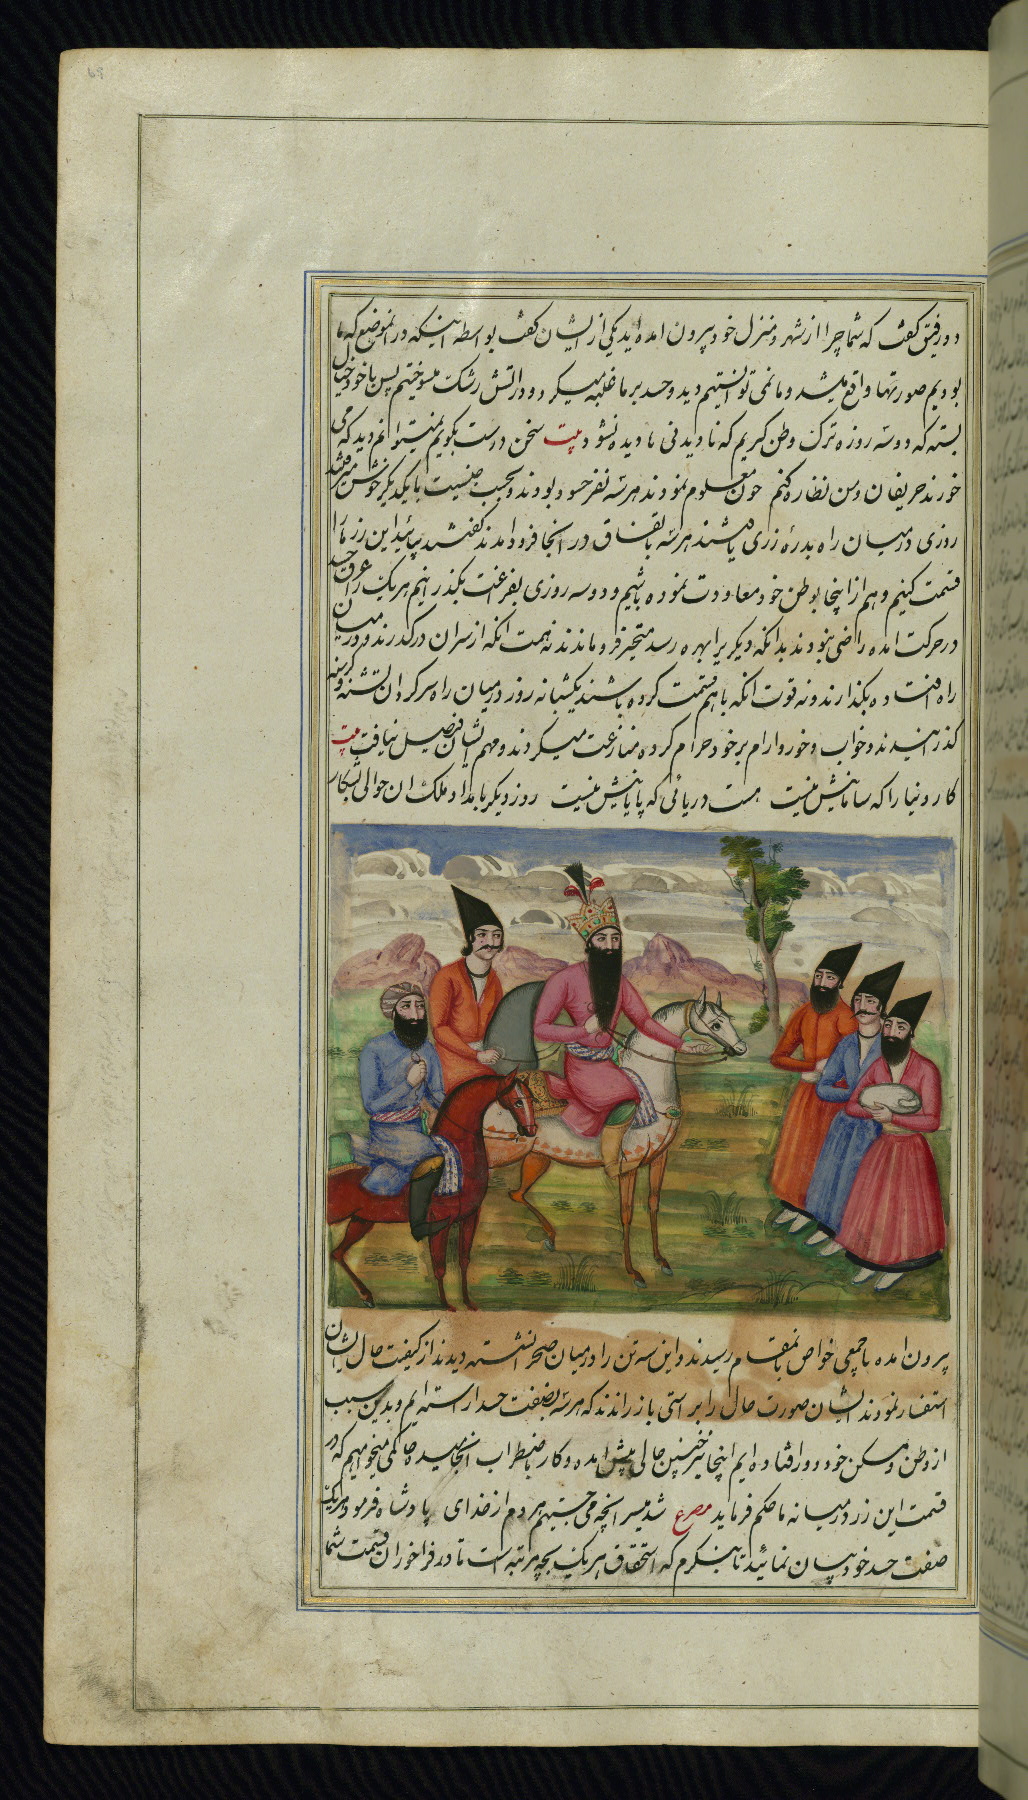 دو رفیق گفت که شما چرا از شهر و منزل خود بیرون امده‌اید یکی از ایشان گفت بواسطه اینکه در انموضع که ما
بودیم صورتها واقع میشد و ما نمی توانستیم دید و حسد بر ما غلبه میکرد و در اتش رشک میسوختیم پس با خود خیال
بسته که دو سه روزه ترک وطن کریم که نادیدنی نادیده نشود بیت سخن درست بگویم نمیتوانم دید که می
خورند حریفان و من نظاره کنم چون معلوم نمودند هر سه نفر حسود بودند و بحسب جنسیت با یکدیگر خوش میرفتند
روزی در میان راه بدرهٔ زری یافتند هر سه باتفاق در انجا فرود امدند گفتند بیائید این زر را ما
قسمت کنیم و هم از اینجا بوطن خود معاودت نموده باشیم و دو سه روزی بفراغت بگذرانیم هر یک را عرق حسد
در حرکت امده راضی نبودند بدانکه دیگریرا بهره رسد متحیر فرو ماندند نه همت انکه از سر ان درگذرند و در میان
راه افتاده بگذارند و نه قوت انکه با هم قسمت کرده باشند یکشبانه روز در میان راه سرگردان تشنه و گرسنه
گذرانیدند و خواب و خور و ارام بر خود حرام کرده منازعت میکردند و مهم ایشان فیصل نیافت بیت
کار دنیا را که سامانیش نیست هست دریائی که پایانیش نیست روز دیگر بامداد ملک ان حوالی بشکار
بیرون امده با جمعی خواص بانمقام رسیدند و این سه تن را در میان صحرا نشسته دیدند از کیفیت حال ایشان
استفسار نمودند ایشان صورت حال را براستی باز راندند که هر سه بصفت حسد اراسته ایم و بدین سبب
از وطن و مسکن خود دور افتاده ایم اینجا نیز چنین حالی پیش امده و کار باضطراب انجامیده حاکمی میخواهیم که در
قسمت این زر در میانه ما حکم فرماید مصرع شد میسر انچه می جستیم هر دم از خدای پادشاه فرمود هر یک
صفت حسد خود بیان نمائید تا بنگرم که استحقاق هر یک بچه مرتبه است تا در فراخور ان قسمت شما